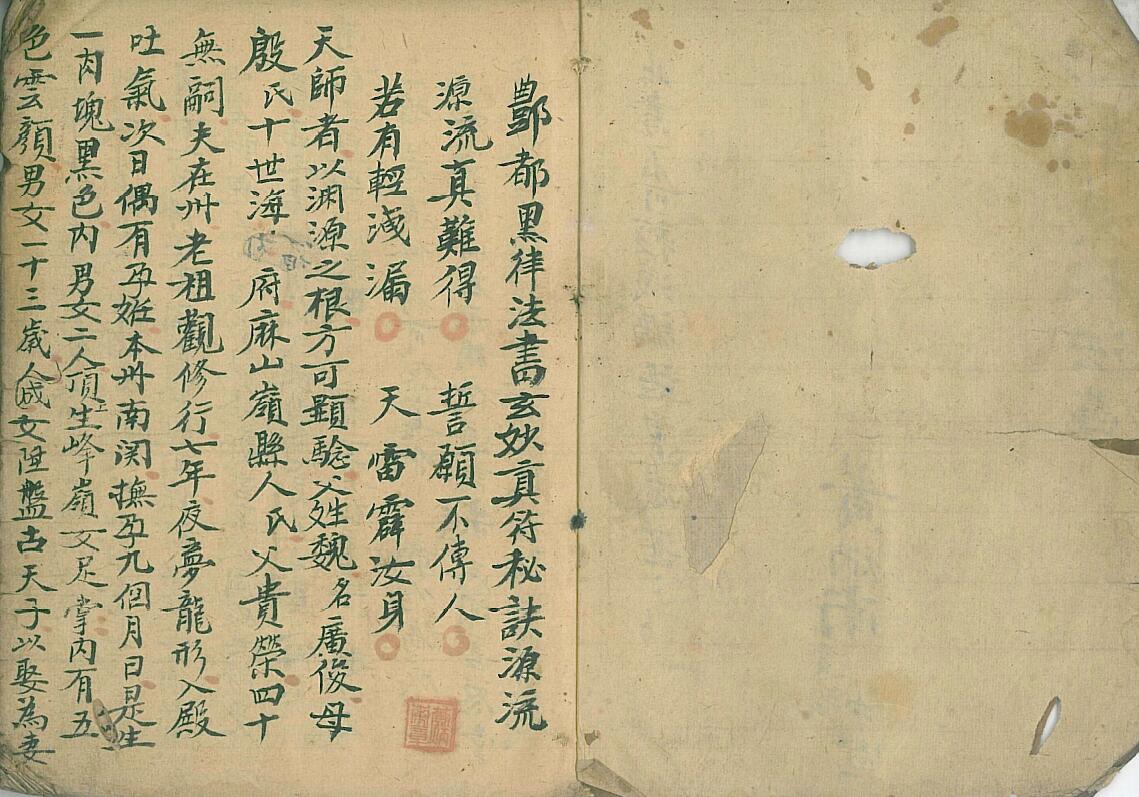 酆都黑律法書玄妙真符秘訣源流
源流真難得 誓願不傳人
若有輕淺漏 天雷霹汝身
天師者以渊源之根方可顯驗父姓魏名廣俊母
殷氏十世海 府麻山嶺縣人氏父貴榮四十
無嗣夫在州老祖觀修行七年夜夢龍形入殿
吐氣次日偶有孕姙本州南関撫孕九個月日是生
一肉塊黑色内男女二人頂生峰嶺文足掌内有五
色雲顏男女一十三歲人成女陞盤古天子以娶為妻